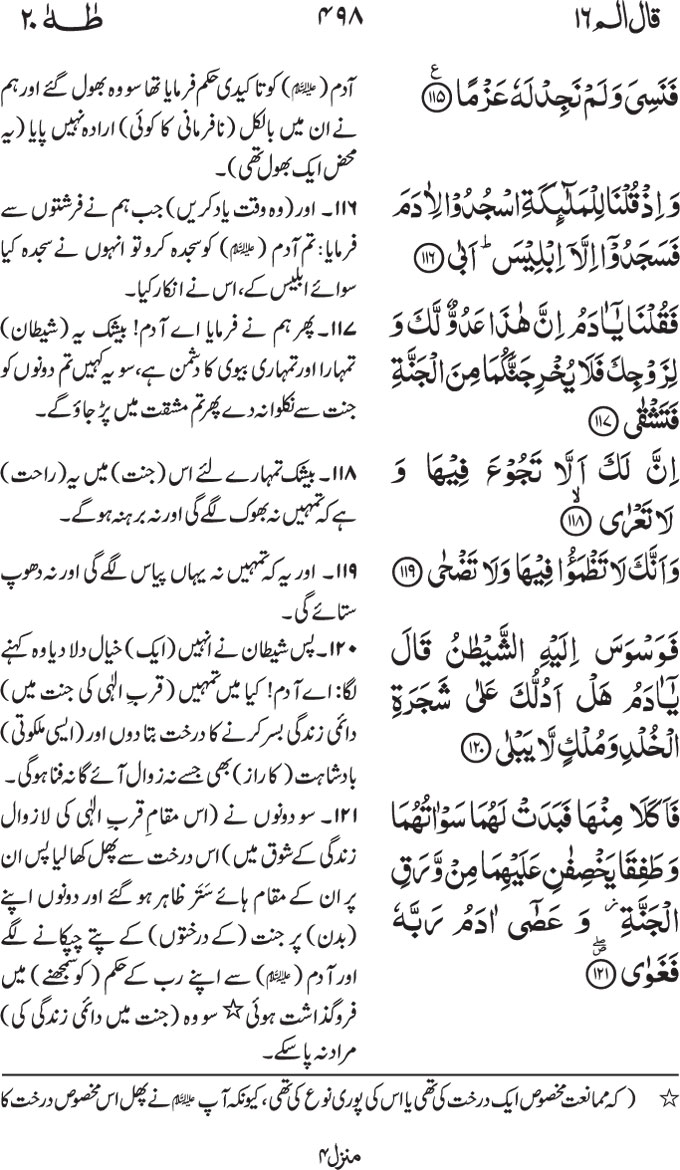 قال الم ١٦
٤٩٨
طٰهٰ ٢٠
فَنَسِیَ وَ لَمۡ نَجِدۡ لَہٗ عَزۡمًا ﴿۱۱۵﴾
وَ اِذۡ قُلۡنَا لِلۡمَلٰٓئِکَۃِ اسۡجُدُوۡا لِاٰدَمَ
فَسَجَدُوۡۤا اِلَّاۤ اِبۡلِیۡسَ ؕ اَبٰی ﴿۱۱۶﴾
فَقُلۡنَا یٰۤاٰدَمُ اِنَّ ہٰذَا عَدُوٌّ لَّکَ وَ
لِزَوۡجِکَ فَلَا یُخۡرِجَنَّکُمَا مِنَ الۡجَنَّۃِ
فَتَشۡقٰی ﴿۱۱۷﴾
اِنَّ لَکَ اَلَّا تَجُوۡعَ فِیۡہَا وَ
لَا تَعۡرٰی ﴿۱۱۸﴾ۙ
وَ اَنَّکَ لَا تَظۡمَؤُا فِیۡہَا وَ لَا تَضۡحٰی ﴿۱۱۹﴾
فَوَسۡوَسَ اِلَیۡہِ الشَّیۡطٰنُ قَالَ
یٰۤاٰدَمُ ہَلۡ اَدُلُّکَ عَلٰی شَجَرَۃِ
الۡخُلۡدِ وَ مُلۡکٍ لَّا یَبۡلٰی ﴿۱۲۰﴾
فَاَکَلَا مِنۡہَا فَبَدَتۡ لَہُمَا سَوۡاٰتُہُمَا
وَ طَفِقَا یَخۡصِفٰنِ عَلَیۡہِمَا مِنۡ وَّرَقِ
الۡجَنَّۃِ ۫ وَ عَصٰۤی اٰدَمُ رَبَّہٗ
فَغَوٰی ﴿۱۲۱﴾۪ۖ
آدم (علیہ السلام) کو تاکیدی حکم فرمایا تھا سو وہ بھول گئے اور ہم
نے ان میں بالکل (نافرمانی کا کوئی) ارادہ نہیں پایا (یہ
محض ایک بھول تھی)۔
۱۱۶۔ اور (وہ وقت یاد کریں) جب ہم نے فرشتوں سے
فرمایا: تم آدم (علیہ السلام) کو سجدہ کرو تو انہوں نے سجدہ کیا
سوائے ابلیس کے، اس نے انکار کیا۔
۱۱۷۔ پھر ہم نے فرمایا اے آدم! بیشک یہ (شیطان)
تمہارا اور تمہاری بیوی کا دشمن ہے، سو یہ کہیں تم دونوں کو
جنت سے نکلوا نہ دے پھر تم مشقت میں پڑ جاؤ گے۔
۱۱۸۔ بیشک تمہارے لئے اس (جنت) میں یہ (راحت)
ہے کہ تمہیں نہ بھوک لگے گی اور نہ برہنہ ہوگے۔
۱۱۹۔ اور یہ کہ تمہیں نہ یہاں پیاس لگے گی اور نہ دھوپ
ستائے گی۔
۱۲۰۔ پس شیطان نے انہیں (ایک) خیال دلا دیا وہ کہنے
لگا: اے آدم! کیا میں تمہیں (قربِ الٰہی کی جنت میں)
دائمی زندگی بسر کرنے کا درخت بتا دوں اور (ایسی ملکوتی)
بادشاہت (کا راز) بھی جسے نہ زوال آئے گا نہ فنا ہوگی۔
۱۲۱۔ سو دونوں نے (اس مقامِ قربِ الٰہی کی لازوال
زندگی کے شوق میں) اس درخت سے پھل کھا لیا پس ان
پر ان کے مقام ہائے سَتَر ظاہر ہو گئے اور دونوں اپنے
(بدن) پر جنت (کے درختوں) کے پتے چپکانے لگے
اور آدم (علیہ السلام) سے اپنے رب کے حکم (کو سمجھنے) میں
فروگذاشت ہوئی☆ سو وہ (جنت میں دائمی زندگی کی)
مراد نہ پا سکے۔
☆ (کہ ممانعت مخصوص ایک درخت کی تھی یا اس کی پوری نوع کی تھی، کیونکہ آپ علیہ السلام نے پھل اس مخصوص درخت کا
منزل ۴